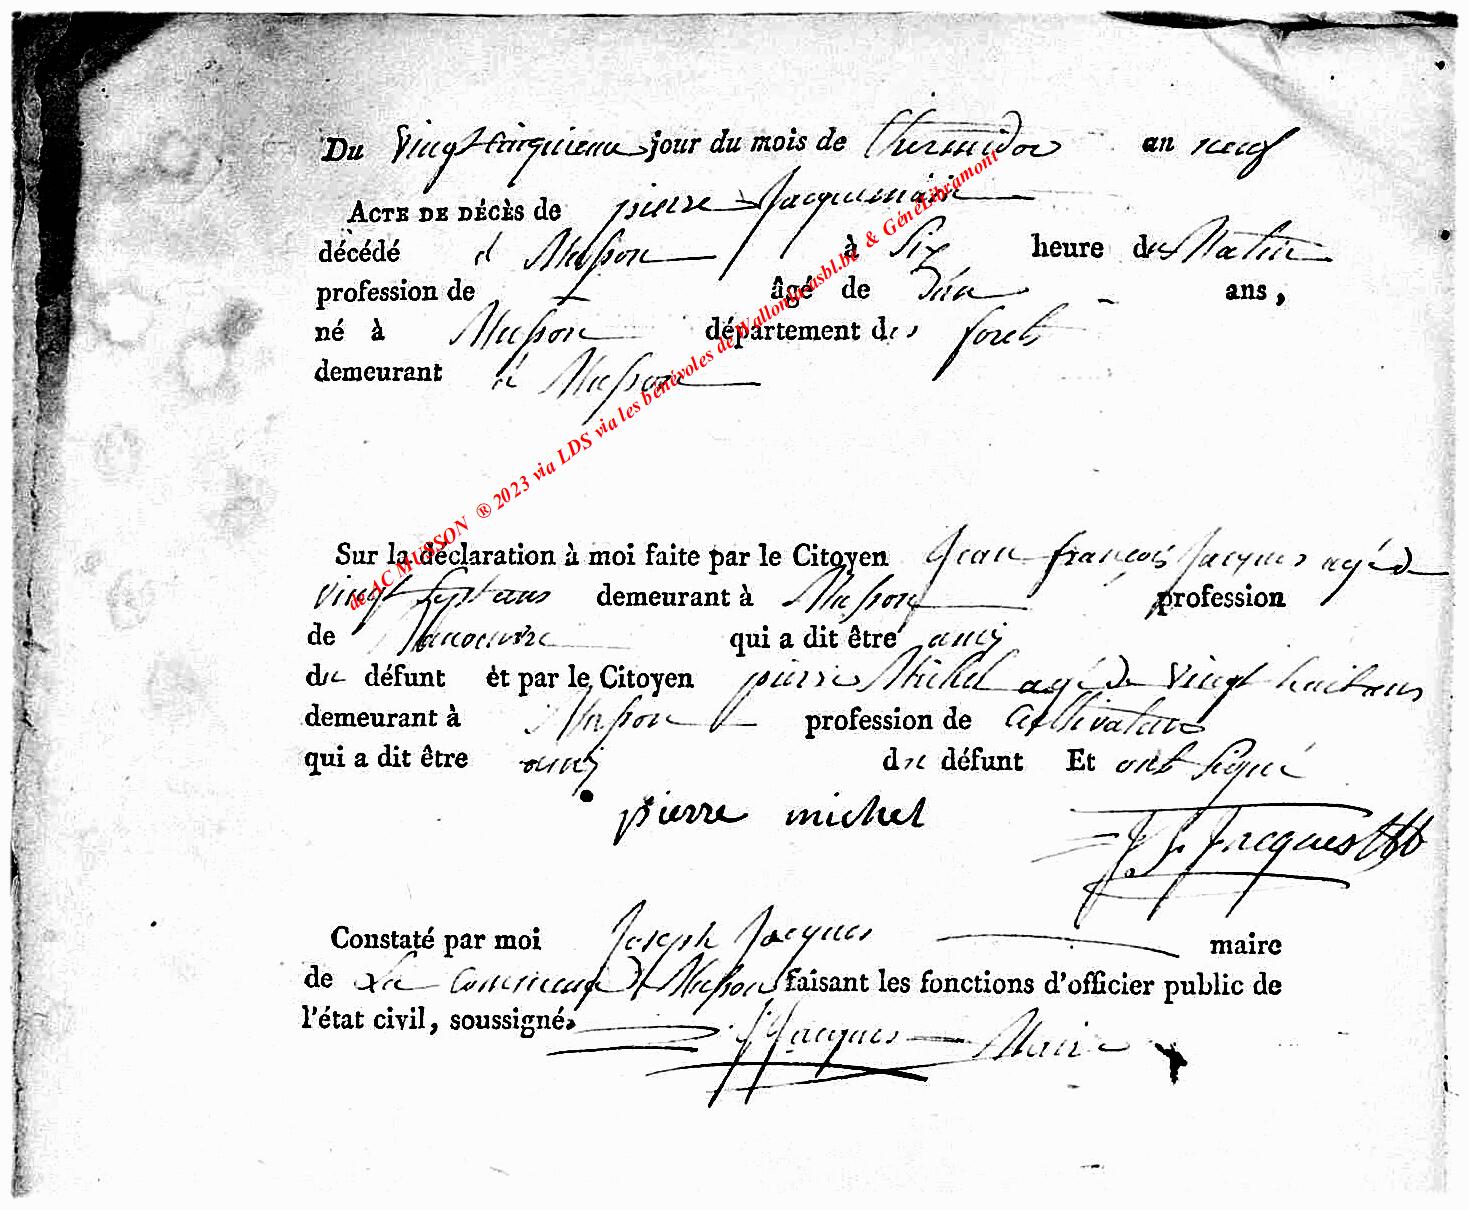 Du Vingt cinquieme jour du mois de thermidor an neuf
ACTE DE DÉCÈS de pierre Jacquemain
décédé à Musson à Six heure du Matin
profession de — âgé de ans,
né à Musson département des forets
demeurant à Musson
Sur la déclaration à moi faite par le Citoyen Jean françois Jacques agé de
vingt sept ans demeurant à Musson profession
de Manoeuvre qui a dit être ami
du défunt et par le Citoyen pierre Michel agé de Vingt huit ans
demeurant à Musson profession de Cultivateur
qui a dit être ami du défunt Et ont signé
pierre michel
J f Jacques
Constaté par moi Joseph Jacques maire
de La Commune de Musson faisant les fonctions d'officier public de
l'état civil, soussigné. J Jacques Maire
de AC MUSSON ® 2023 via LDS via les bénévoles de Wallonia-asbl.be & GénéLibramont